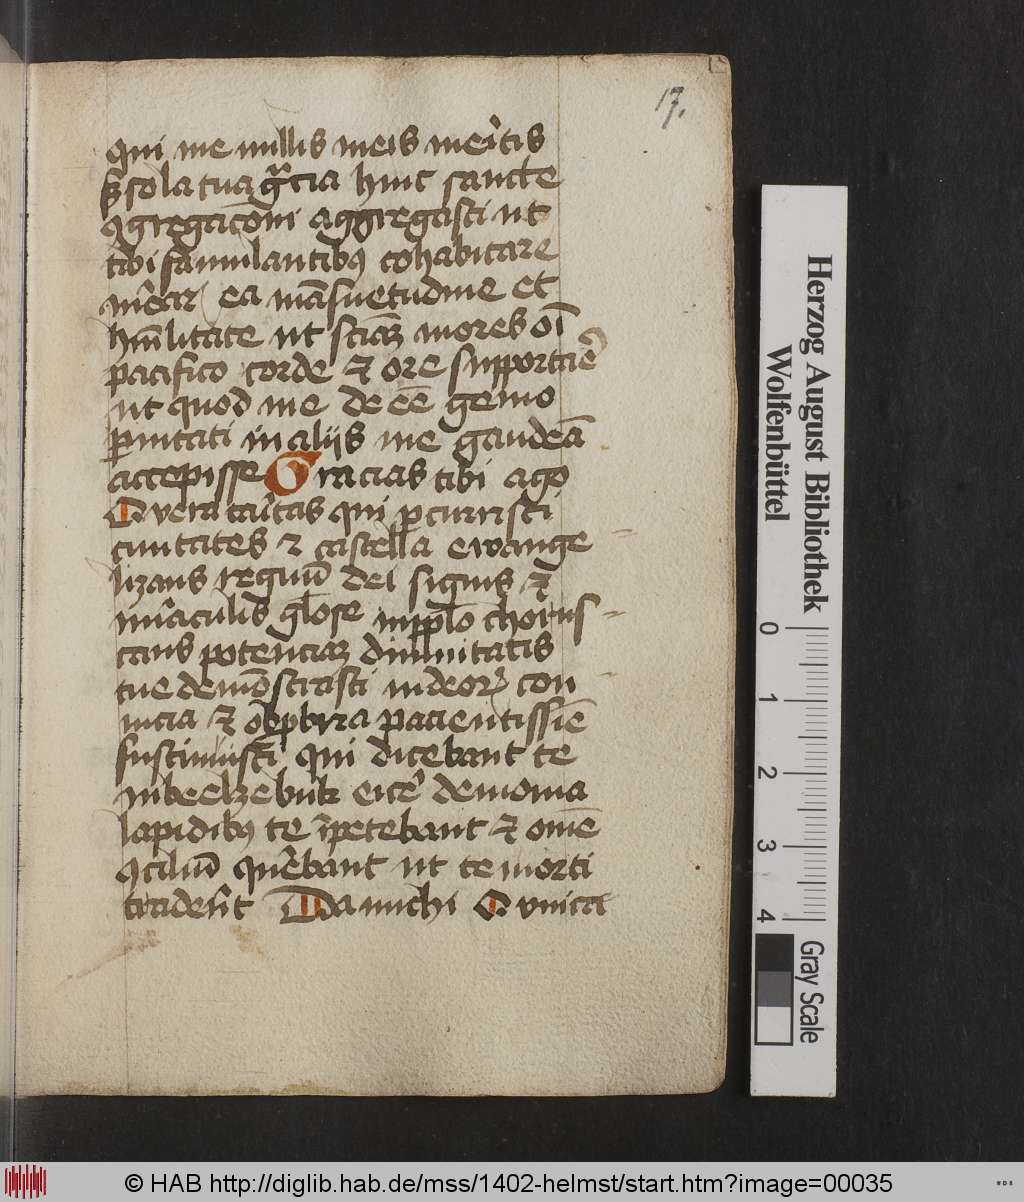 17.
qui me nullis meis mei̾tis
ʒ sola tua gr̃cia huic sancte
ꝯgregac̃oni aggregasti ut
tibi famulantibꝰ cohabitare
me᷑ar ea mãsuetudine et
hũilitate ut sc̃iaꝝ mores oĩ
pacifico corde ⁊ ore supportãe
ut quod me de eẽ gemo
ꝑmitati in alijs me gaudeã
accepisse Gracias tibi ago
O vera cãitas qui ꝑcurristi
ciuitates ⁊ castella ewange
lizans regnũ dei signis ⁊
mi̾aculis gl̃ose in ppl̃o chorus
cans potenciaꝫ diuinitatis
tue demõstrasti iudeoꝝ con
uicia ⁊ obꝓbria pacientissiẽ
sustinuisti qui dicebant te
in beelzebub eice᷑ demonia
lapidibꝰ te ĩpetebant ⁊ om̃e
ꝯciliũ que᷑bant ut te morti
tradere᷑t Da michi O vnica
Herzog August Bibliothek
Wolfenbüttel
0 1 2 3 4
Gray Scale
© HAB http://diglib.hab.de/mss/1402-helmst/start.htm?image=00035